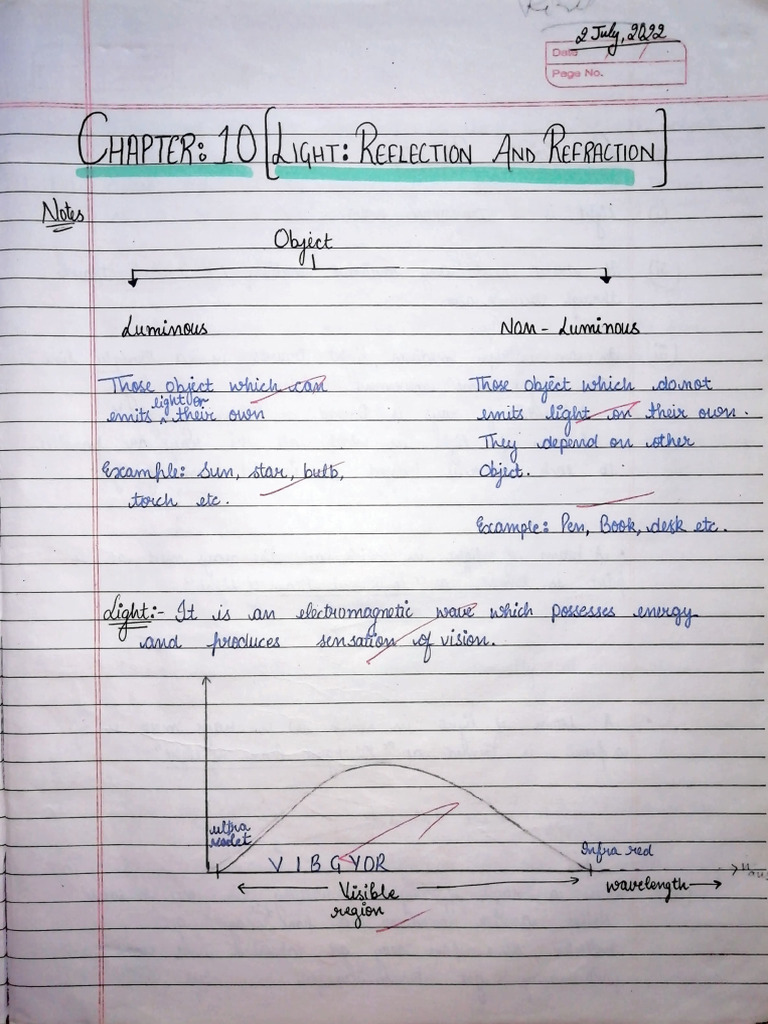 2 July, 2022
Date / /
Page No.
CHAPTER: 10 [LIGHT: REFLECTION AND REFRACTION]
Notes
Object
Luminous
Non - Luminous
Those object which can
emits light on their own
Example: Sun, star, bulb,
torch etc.
Those object which do not
emits light on their own.
They depend on other
Object.
Example: Pen, Book, desk etc.
Light:- It is an electromagnetic wave which possesses energy
and produces sensation of vision.
ultra
violet
V I B G Y O R
Infra red
Visible
region
wavelength